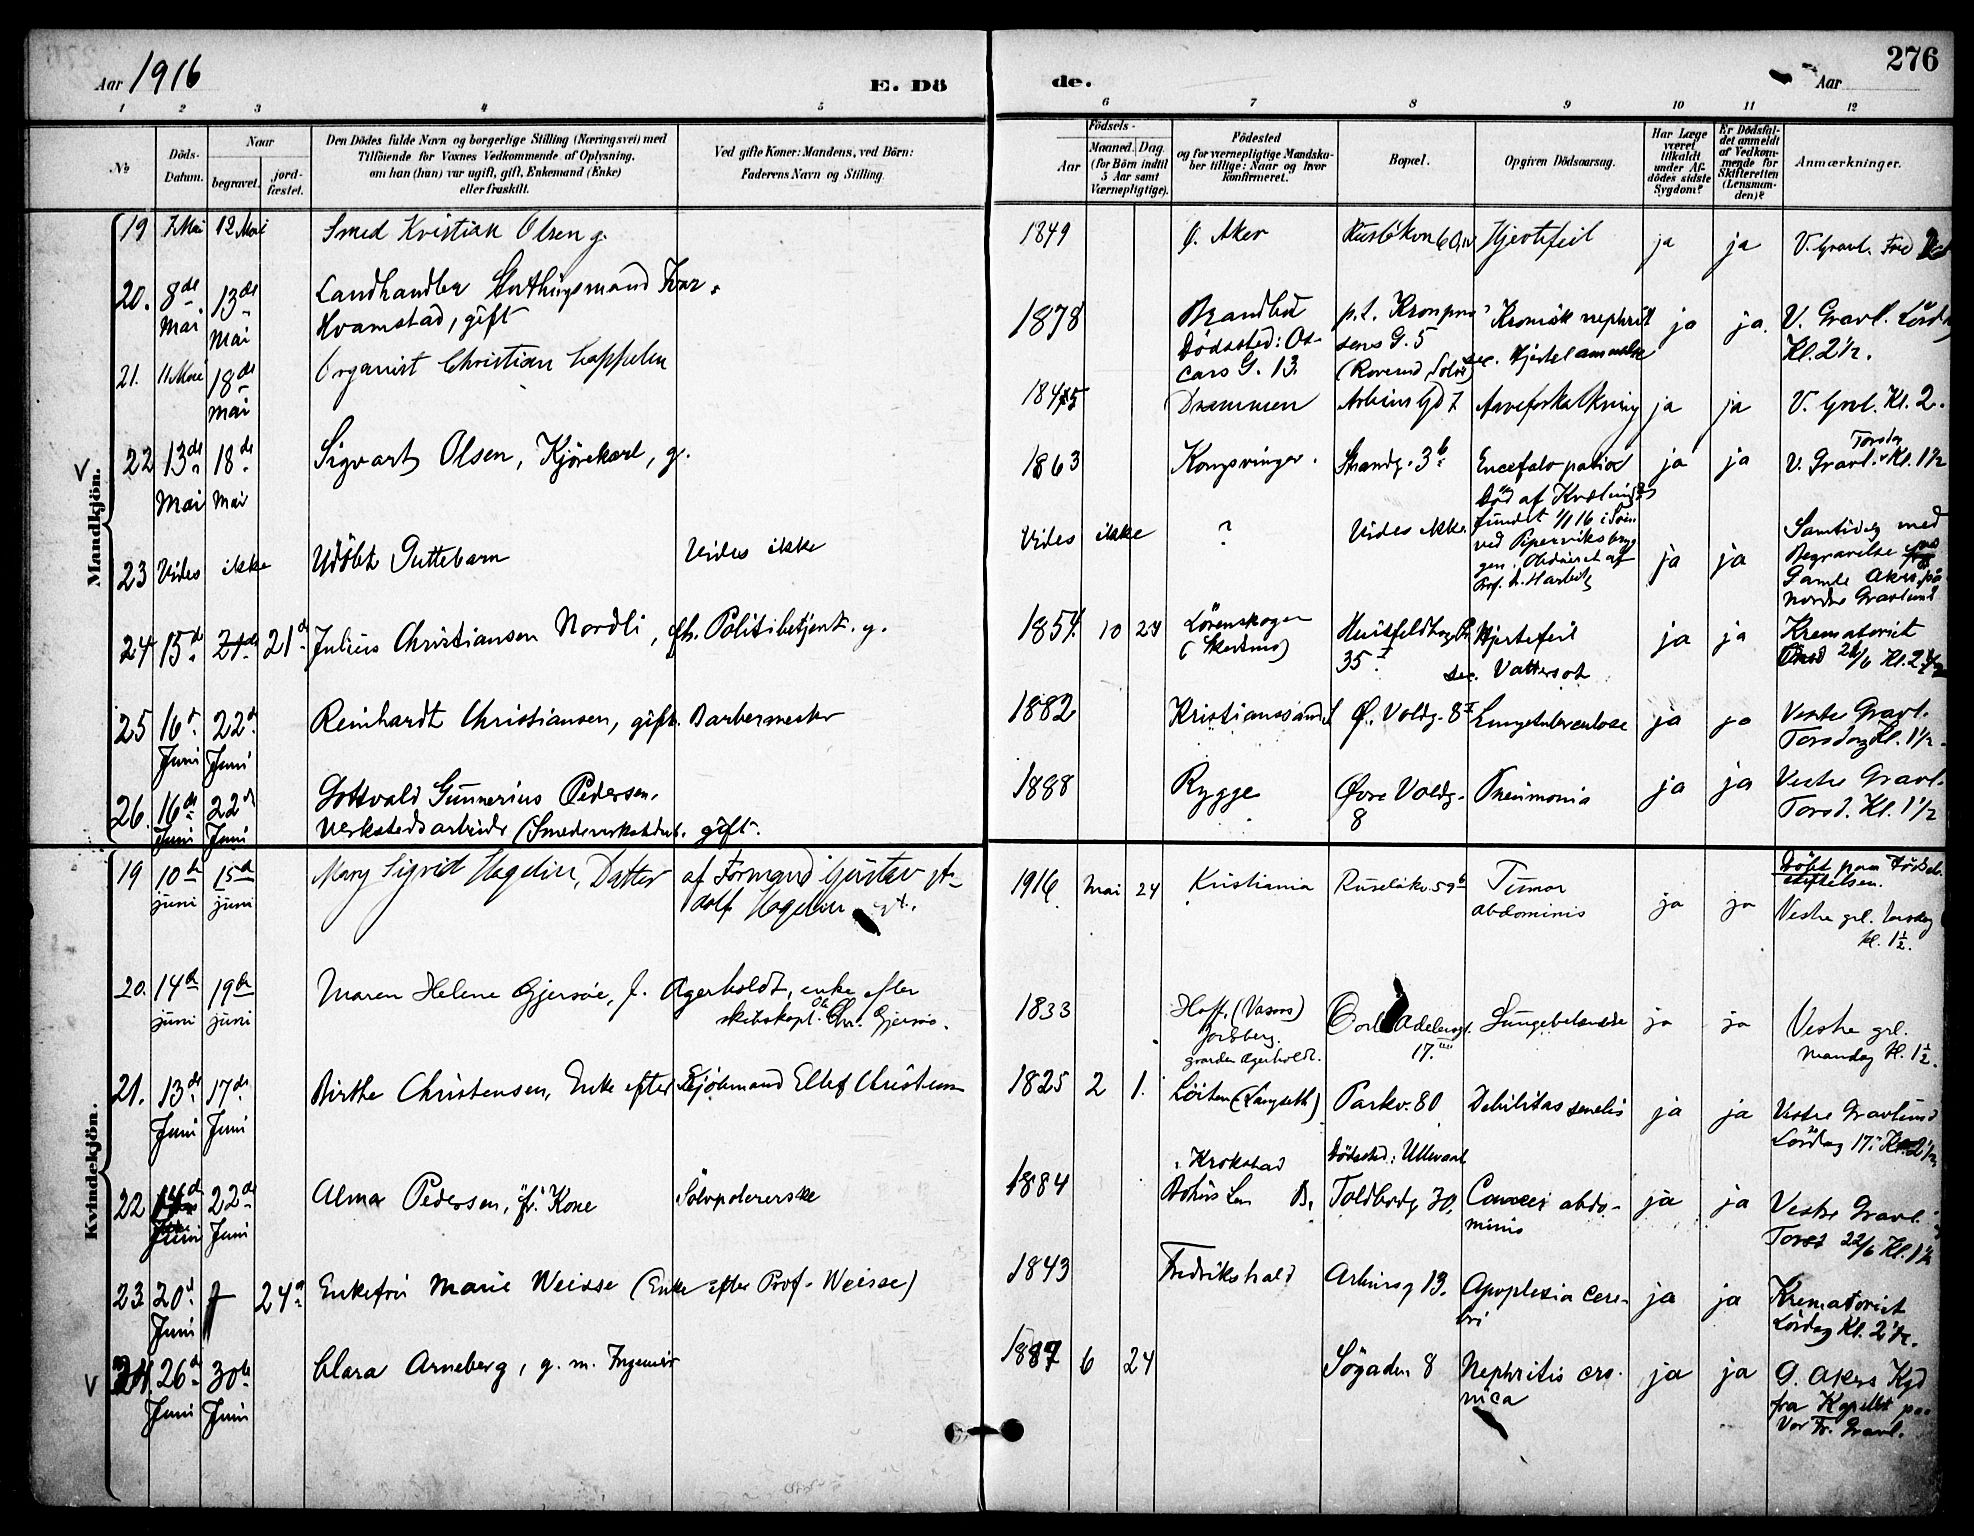 276
Aar 1916
E. Dö
de.
Aar
1 2 3 4 5 6 7 8 9 10 11 12
No
Döds-Datum.
Naar
begravet.
jord-fæstet.
Den Dödes fulde Navn og borgerlige Stilling (Næringsvei) med
Tilföiende for Voxnes Vedkommende af Oplysning,
om han (hun) var ugift, gift, Enkemand (Enke)
eller fraskilt.
Ved gifte Koner: Mandens, ved Börn:
Faderens Navn og Stilling.
Födsels-
Aar
Maaned. Dag.
(for Börn indtil
5 Aar samt
Værnepligtige).
Födested
og for værnepligtige Mandska-
ber tillige: Naar og hvor
konfirmeret.
Bopæl.
Opgiven Dödsaarsag.
Har Læge
været
tilkaldt
under Af-
dödes sidste
Sygdom?
Er Dödsfal-
det anmeldt
af Vedkom-
mende for
Skifteretten
(Lensman-
den)?
Anmærkninger.
Mandkjön.
19 7 Mai 12 Mai Smed Kristian Olsen g. 1849 Ø. Aker Hjertefeil ja ja V. Gravl.
20. 8de Mai 13de Mai Landhandler Storthingsmand Ivar
Hvamstad, gift 1878 Brandbu
Dödssted: Os-
cars G. 13. p.t. Kronprin
sens G. 5 Kronisk nephrit ja ja. V. Gravl. Lørd
Kl. 2½.
21. 11 Mai 18de Mai Organist Christian Cappelen 1845 Drammen Arbins Gd 7 Aareforkalkning ja ja V. Grvl. Kl. 2.
22 13de Mai 18de Mai Sigvart Olsen, Kjörekarl, g. 1863 Kongsvinger. Strandg. 3b Encefalopatia ja ja Torsdag
V. Gravl. Kl. 1½
23 Vides ikke Udöbt Guttebarn Vides ikke Vides ikke ? Vides ikke. Död af Kvælning
fundet 1/1 16 i Söen
ved Piperviksbryg
gen. Obduceret af
Prof. Dr. Harbitz ja ja Samtidig med
Begravelse fra
Gamle Akers på
Nordre Gravlund
24 15de 21de 21de Julius Christiansen Nordli, fh. Politibetjent. g. 1854 10 24 Lörenskogen
Huitfeldtsg
35 I Hjertefeil
sec. Vattersot ja ja Krematoriet
Kl. 2½
25 16de Juni 22de Juni Reinhardt Christiansen, gift. Barbermester 1882 Kristianssand Ø. Voldg. 8 I Lungetuberculose ja ja Vestre Gravl.
Torsdag Kl. 1½
26. 16de Juni 22de Juni Gottvald Gunnerius Pedersen,
Verkstedsarbeide (Smedverkstedarb. gift. 1888 Rygge Øvre Voldg.
8 Pneumonia ja ja Vestre Gravl.
Torsd. Kl. 1½
Kvindekjön.
19 10de juni 15de juni Mary Sigrid Hagelin, Datter af Formand Gustav A-
dolf Hagelin 1916 Mai 24 Kristiania Ruselökv. 59b Tumor
abdominis ja ja Döbt paa Födsels
stiftelsen.
Vestre grl. torsdag
kl. 1½.
20. 14de juni 19de juni Maren Helene Gjersöe, f. Agerholdt, enke efter
skibskapt. Chr. Gjersöe. 1833 Hoff, (Vaaors)
Jarlsberg.
gaarden Agerholdt. Carl Adelersgt.
17. Lungebetændelse ja ja Vestre grl.
mandag kl. 1½.
21. 13de Juni 17de Juni Birthe Christensen, Enke efter Sjömand Ellef Christensen 1825 2 1. Löiten (Langseth) Parkv. 80 Debilitas senilis ja ja Vestre Gravlund
Lördag 17. Kl. 2½
22 14de Juni 22de Juni Alma Pedersen, fr. Kone Sölvpolererske 1884 Krokstad
Bohus Len B. Dödssted: Ullevaal
Toldbodg 70. Cancer abdo-
minis ja ja Vestre Gravl.
Torsd 22/6 Kl. 1½
23 20de Juni 24de Enkefru Marie Weisse (Enke efter Prof. Weisse) 1843 Fredrikshald Arbinsg 13. Apoplexia cere-
bri ja ja Krematoriet
Lördag Kl. 2½.
24. 26de Juni 30te Juni Clara Arneberg, g. m. Ingeniör 1887 6 24 Sögaden 8 Nephritis cro-
nica ja ja G. Akers Kgd
fra Kapellet paa
Vor Fr. Gravl.